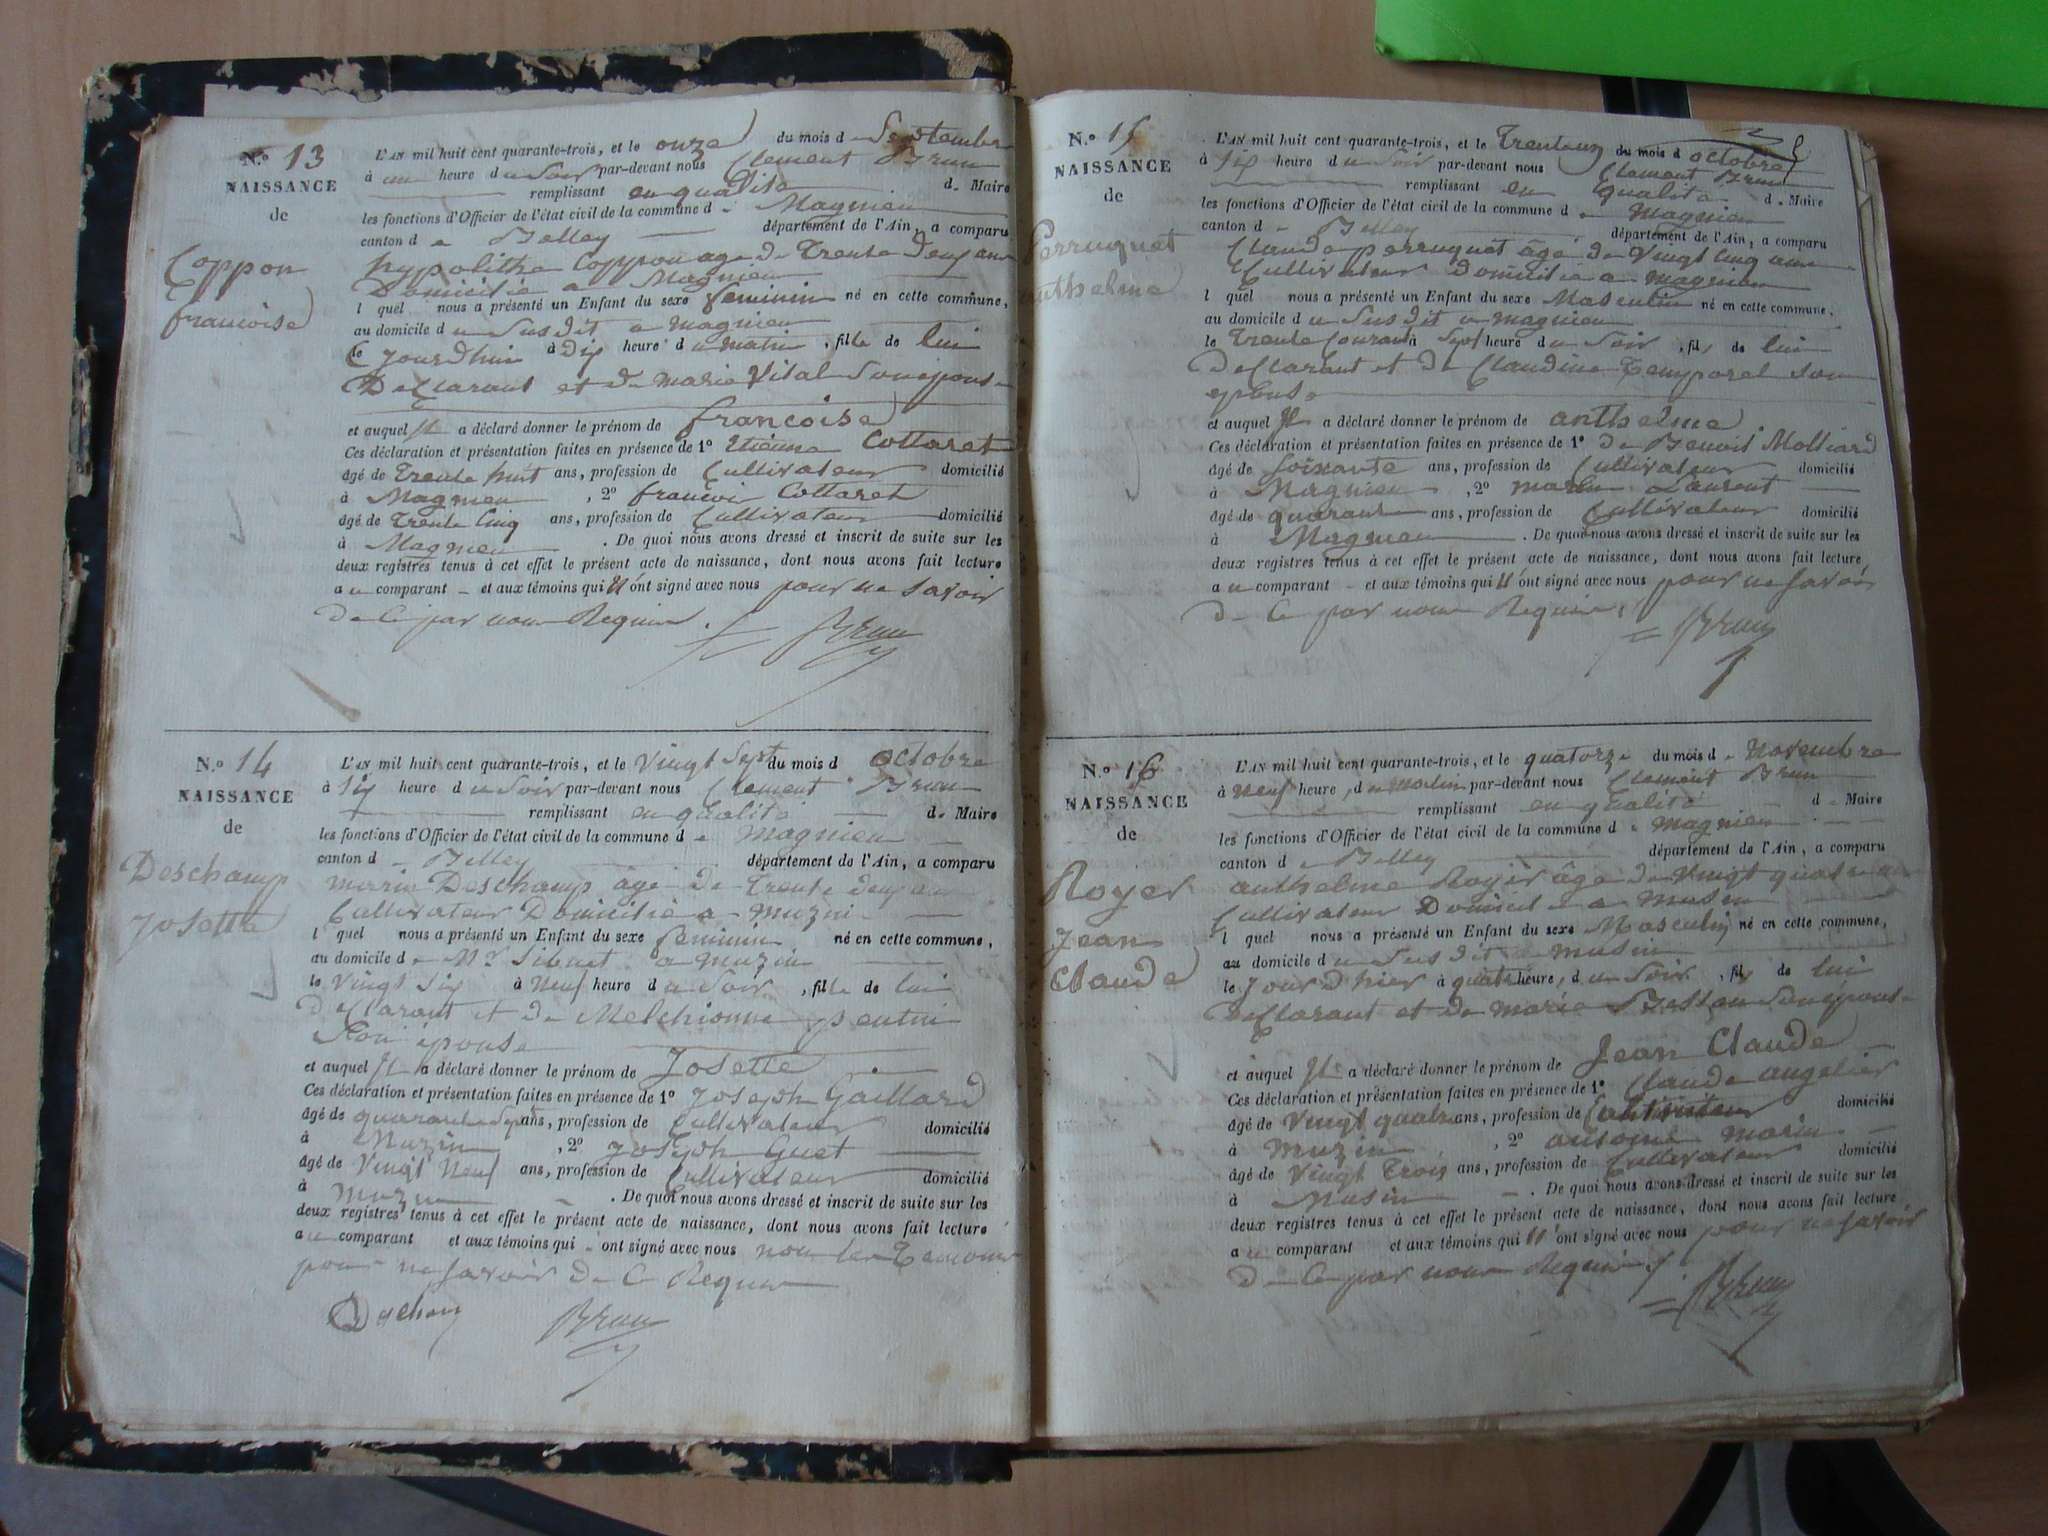 N.º 13
NAISSANCE
de
Coppon
francoise
L'AN mil huit cent quarante-trois, et le onze du mois d e Septembre
à une heure d u Soir par-devant nous Clement Brun
remplissant en qualité d e Maire
les fonctions d'Officier de l'état civil de la commune d e Magnieu
canton d e Belley département de l'Ain, a comparu
hypolithe Coppon age de Trente Deux ans
Domicilié a Magnieu
l quel nous a présenté un Enfant du sexe feminin né en cette commune,
au domicile d u Susdit a magnieu
le jourdhui à Dix heure d u matin, fille de lui
Declarant et de marie Vital Son epouse
et auquel il a déclaré donner le prénom de francoise
Ces déclaration et présentation faites en présence de 1º Etienne Cottaret
âgé de Trente huit ans, profession de Cultivateur domicilié
à Magnieu, 2º francois Cottaret
âgé de Trente Cinq ans, profession de Cultivateur domicilié
à Magnieu. De quoi nous avons dressé et inscrit de suite sur les
deux registres tenus à cet effet le présent acte de naissance, dont nous avons fait lecture
a u comparant et aux témoins qui n'ont signé avec nous pour ne Savoir
de ce par nous Requis.
Brun
N.º 14
NAISSANCE
de
Deschamp
Josette
L'AN mil huit cent quarante-trois, et le Vingt Sept du mois d octobre
à Six heure d u Soir par-devant nous Clement Brun
remplissant en qualité d e Maire
les fonctions d'Officier de l'état civil de la commune d e Magnieu
canton d e Belley département de l'Ain, a comparu
marin Deschamp âgé de Trente deux ans
Cultivateur Domicilié a Muzin
l quel nous a présenté un Enfant du sexe feminin né en cette commune,
au domicile d e Mr a muzin
le Vingt Six à Neuf heure d u Soir, fille de lui
Declarant et de Melchionne
Son épouse
et auquel il a déclaré donner le prénom de Josette
Ces déclaration et présentation faites en présence de 1º Joseph Gaillard
âgé de quarante sept ans, profession de Cultivateur domicilié
à Muzin, 2º Joseph Guet
âgé de Vingt Neuf ans, profession de Cultivateur domicilié
à muzin. De quoi nous avons dressé et inscrit de suite sur les
deux registres tenus à cet effet le présent acte de naissance, dont nous avons fait lecture
a u comparant et aux témoins qui ont signé avec nous non les Temoins
pour ne Savoir de ce Requis
Brun
N.º 15
NAISSANCE
de
Perruquet
anthelme
L'AN mil huit cent quarante-trois, et le Trenteun du mois d octobre
à Six heure d u Soir par-devant nous Clement Brun
remplissant en qualité d e Maire
les fonctions d'Officier de l'état civil de la commune d e Magnieu
canton d e Belley département de l'Ain, a comparu
Claude perruquet âgé de Vingt Cinq ans
Cultivateur Domicilié a magnieu
l quel nous a présenté un Enfant du sexe Masculin né en cette commune,
au domicile d u Susdit a magnieu
le Trente Courant à Sept heure d u Soir, fils de lui
Declarant et de Claudine Temporel son
epouse
et auquel il a déclaré donner le prénom de anthelme
Ces déclaration et présentation faites en présence de 1º de Benoit Molliard
âgé de Soixante ans, profession de Cultivateur domicilié
à Magnieu, 2º marin Laurent
âgé de quarante ans, profession de Cultivateur domicilié
à Magnieu. De quoi nous avons dressé et inscrit de suite sur les
deux registres tenus à cet effet le présent acte de naissance, dont nous avons fait lecture
a u comparant et aux témoins qui n'ont signé avec nous pour ne Savoir
de ce par nous Requis.
Brun
N.º 16
NAISSANCE
de
Royer
Jean
Claude
L'AN mil huit cent quarante-trois, et le quatorze du mois d e Novembre
à neuf heure, d u matin par-devant nous Clement Brun
remplissant en qualité d e Maire
les fonctions d'Officier de l'état civil de la commune d e magnieu
canton d e Belley département de l'Ain, a comparu
anthelme Royer âgé de Vingt quatre ans
Cultivateur Domicilié a Musin
l quel nous a présenté un Enfant du sexe Masculin né en cette commune,
au domicile d u Susdit a musin
le Jour d'hier à quatre heure, d u Soir, fils de lui
Declarant et de marie Son épouse
et auquel il a déclaré donner le prénom de Jean Claude
Ces déclaration et présentation faites en présence de 1º Claude angelier
âgé de Vingt quatre ans, profession de Cultivateur domicilié
à muzin, 2º antoine marin
âgé de Vingt Trois ans, profession de Cultivateur domicilié
à Musin. De quoi nous avons dressé et inscrit de suite sur les
deux registres tenus à cet effet le présent acte de naissance, dont nous avons fait lecture
a u comparant et aux témoins qui n'ont signé avec nous pour ne Savoir
de ce par nous Requis.
Brun